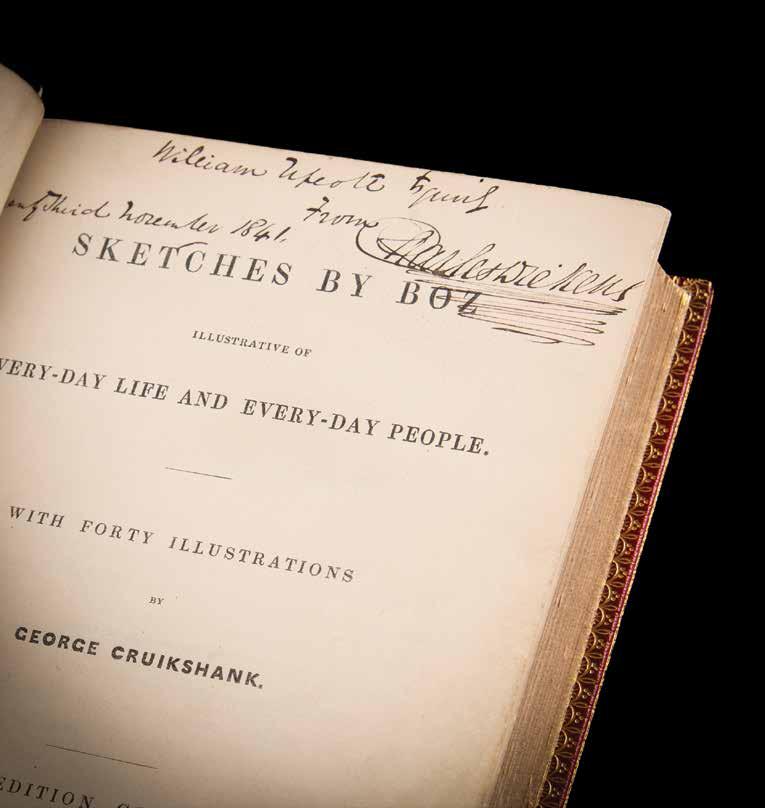 William Upcott Esquire
From
Third November 1841.
Charles Dickens
SKETCHES BY BOZ
ILLUSTRATIVE OF
VERY-DAY LIFE AND EVERY-DAY PEOPLE.
WITH FORTY ILLUSTRATIONS
BY
GEORGE CRUIKSHANK.
EDITION, CO